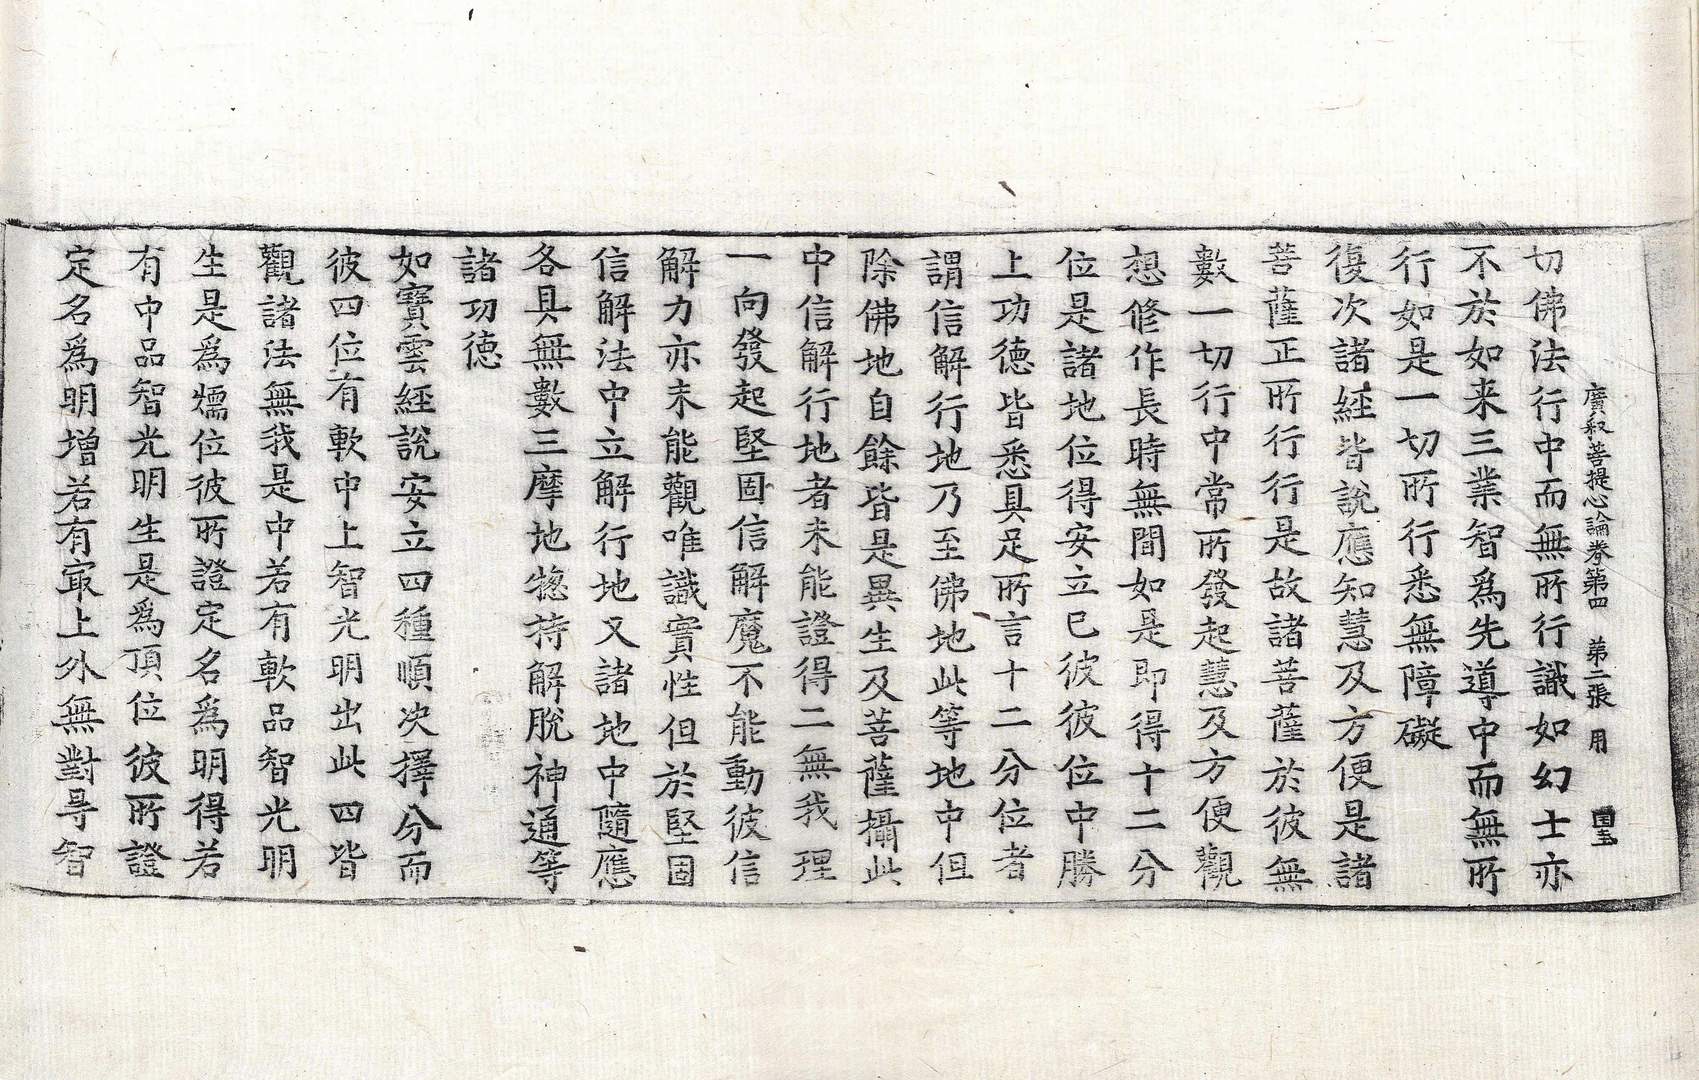 廣釋菩提心論卷第四 第二張 用
切佛法行中而無所行識如幻士亦
不於如来三業智爲先導中而無所
行如是一切所行悉無障礙
復次諸經皆說應知慧及方便是諸
菩薩正所行行是故諸菩薩於彼無
數一切行中常所發起慧及方便觀
想修作長時無間如是即得十二分
位是諸地位得安立已彼彼位中勝
上功德皆悉具足所言十二分位者
謂信解行地乃至佛地此等地中但
除佛地自餘皆是異生及菩薩攝此
中信解行地者未能證得二無我理
一向發起堅固信解魔不能動彼信
解力亦未能觀唯識實性但於堅固
信解法中立解行地又諸地中隨應
各具無數三摩地惣持解脫神通等
諸功德
如寶雲經說安立四種順决擇分而
彼四位有軟中上智光明出此四皆
觀諸法無我是中若有軟品智光明
生是爲燸位彼所證定名爲明得若
有中品智光明生是爲頂位彼所證
定名爲明增若有㝡上外無對㝵智